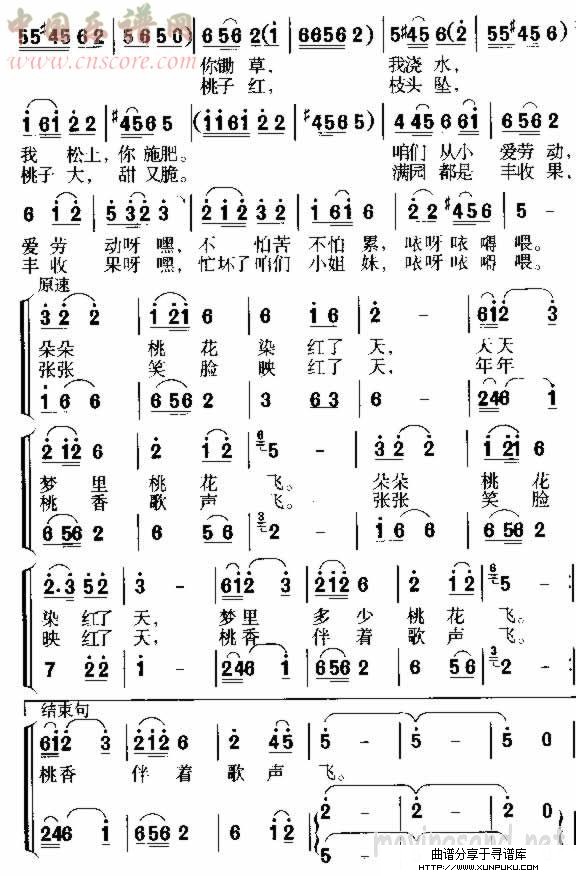 中国乐谱网
www.cnscore.com
55#4562 | 5650 | 6562(i | 66562) | 5#456(2 | 55#4562)
你锄草，我浇水，
桃子红，枝头坠，
i6i22 | #4565 | (ii6i22 | #4565) | 445 66i | 6562
我松上，你施肥。咱们从小爱劳动，
桃子大，甜又脆。满园都是丰收果，
6 i2 | 5323 | 2i232 | i6i6i | 22#456 | 5 -
爱劳动呀嘿，不怕苦不怕累，哝呀哝嘚喂。
丰收果呀嘿，忙坏了咱们小姐妹，哝呀哝嘚喂。
原速
3 2 2 | i2i6 | 6 i6i | 2 - | 6i2 3
朵朵桃花染红了天，天天
张张笑脸映红了天，年年
i66 | 6562 | 3 63 | 6 - | 246 i
2i26 | 2 i2 | 5 - | 322 | i2i6
梦里桃花飞。朵朵桃花
桃香歌声飞。张张笑脸
6562 | 6 56 | 2 - | i66 | 6562
2·352 | 3 - | 6i2 3 | 2i26 | 2 i2 | 5 - :
染红了天，梦里多少桃花飞。
映红了天，桃香伴着歌声飞。
7 22 | i - | 246 i | 6562 | 6 56 | 2 - :
结束句
6i2 3 | 2i26 | 2 45 | 5 - | 5 - | 5 0
桃香伴着歌声飞。
246 i | 6562 | 6 i2 | 2 - | 2 - | 2 0
5 -
曲谱分享于寻谱库
www.xunpuku.com